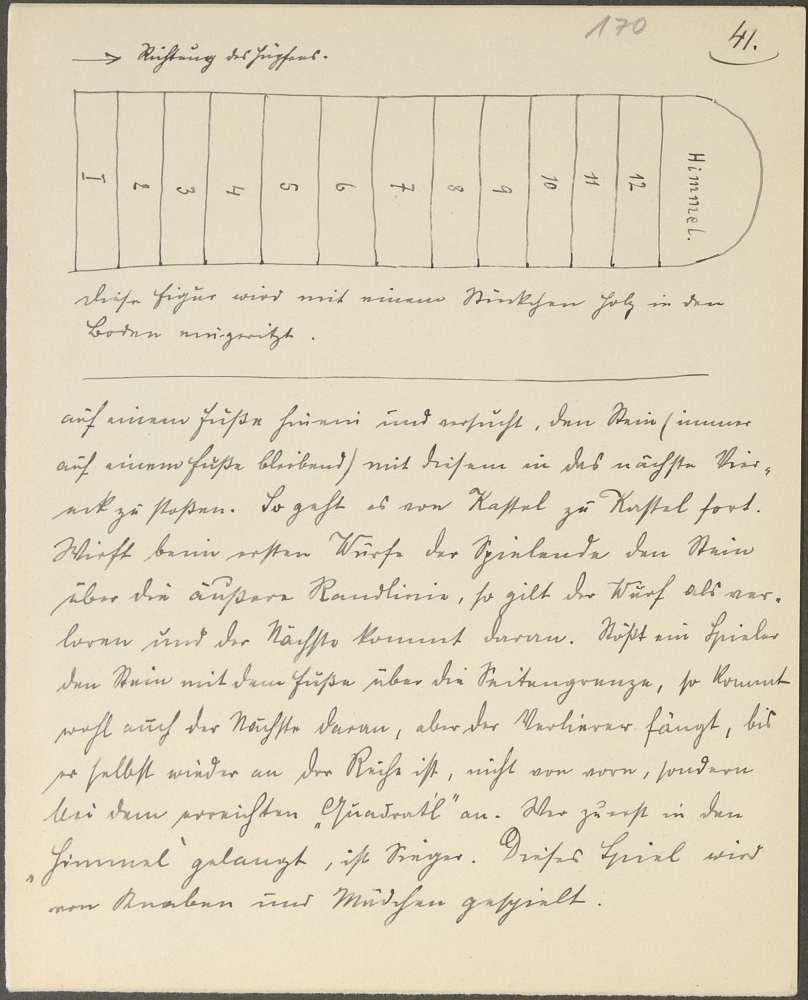 170
41.
→ Richtung des Hüpfens.
I 2 3 4 5 6 7 8 9 10 11 12 Himmel.
Diese Figur wird mit einem Stückchen Holz in den
Boden eingeritzt.
auf einem Fuße hinein und versucht, den Stein (immer
auf einem Fuße bleibend) mit diesem in das nächste Vier-
eck zu stoßen. So geht es von Kastel zu Kastel fort.
Wirft beim ersten Wurfe der Spielende den Stein
über die äußere Randlinie, so gilt der Wurf als ver-
loren und der Nächste kommt daran. Stößt ein Spieler
den Stein mit dem Fuße über die Seitengrenze, so kommt
wohl auch der Nächste daran, aber der Verlierer fängt, bis
er selbst wieder an der Reihe ist, nicht von vorn, sondern
bei dem erreichten „Quadratl" an. Wer zuerst in den
„Himmel" gelangt, ist Sieger. Dieses Spiel wird
von Knaben und Mädchen gespielt.